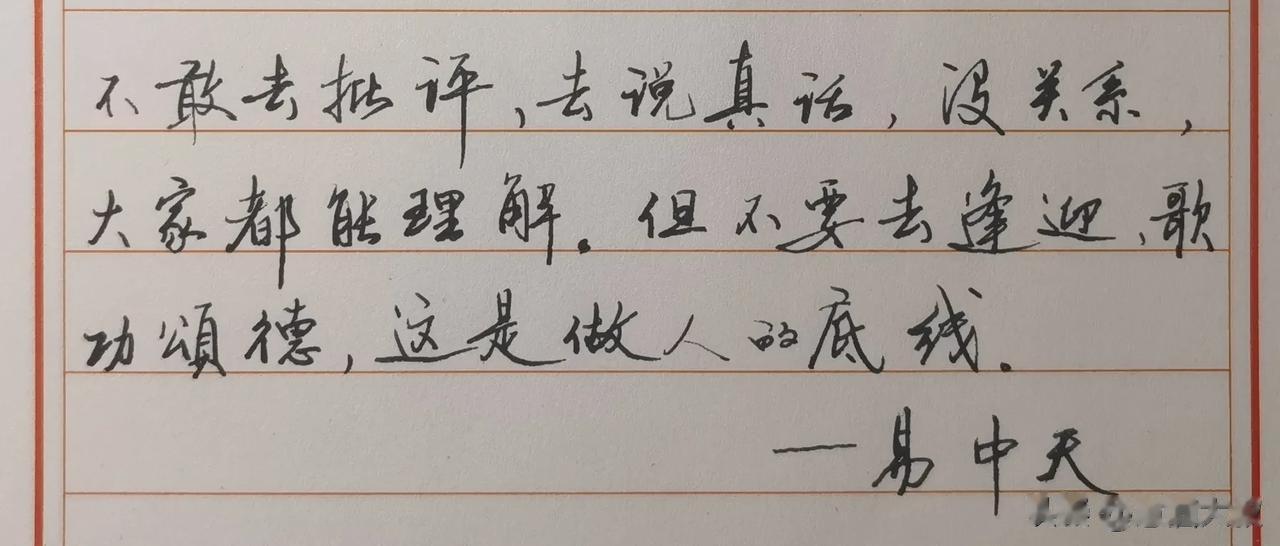 不敢去批评，去说真话，没关系，
大家都能理解。但不要去逢迎、歌
功頌德，这是做人的底线。
—易中天